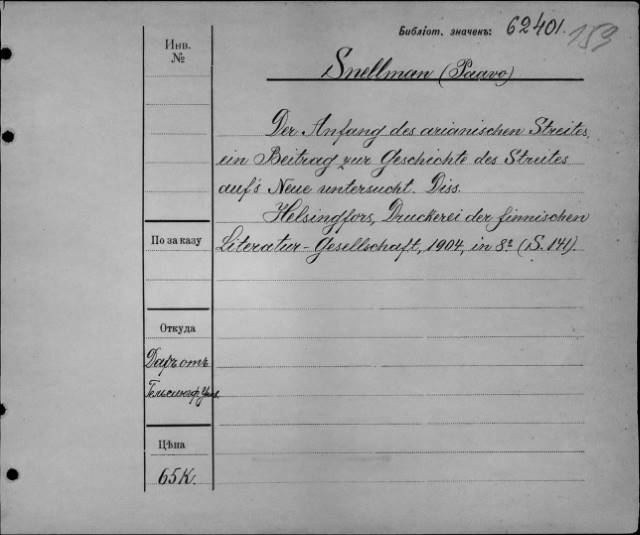 Библіот. значенъ: 62401. 153
Инв.
№
Snellman (Paavo)
Der Anfang des arianischen Streites,
ein Beitrag zur Geschichte des Streites
auf's Neue untersucht. Diss.
Helsingfors, Druckerei der finnischen
Literatur-Gesellschaft, 1904, in 8º (S. 141).
По заказу
Откуда
Даръ отъ
Цѣна
65 К.